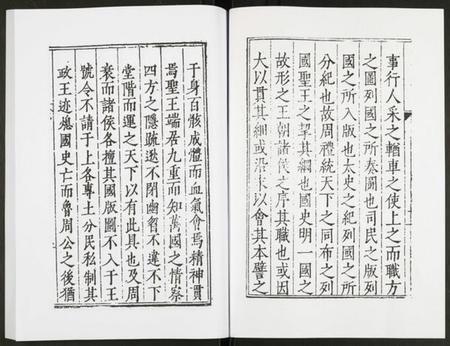 事行人采之輶車之使上之而職方
之圖列國之所奏闢也司民之版列
國之所入版也太史之紀列國之所
分紀也故周禮統天下之同布之列
國聖王之望其綱也國史明一國之
故形之王朝諸侯之序其職也或因
大以貫其細或沿末以會其本譬之
于身百骸成體而血氣會焉精神貫
焉聖王端居九重而知萬國之情察
四方之隱疏逖不閉幽窅不違不下
堂階而運之天下以有此具也及周
衰而諸侯各擅其國版圖不入于王
號令不請于上各專土分民私制其
政王迹熄國史亡而魯周公之後猶